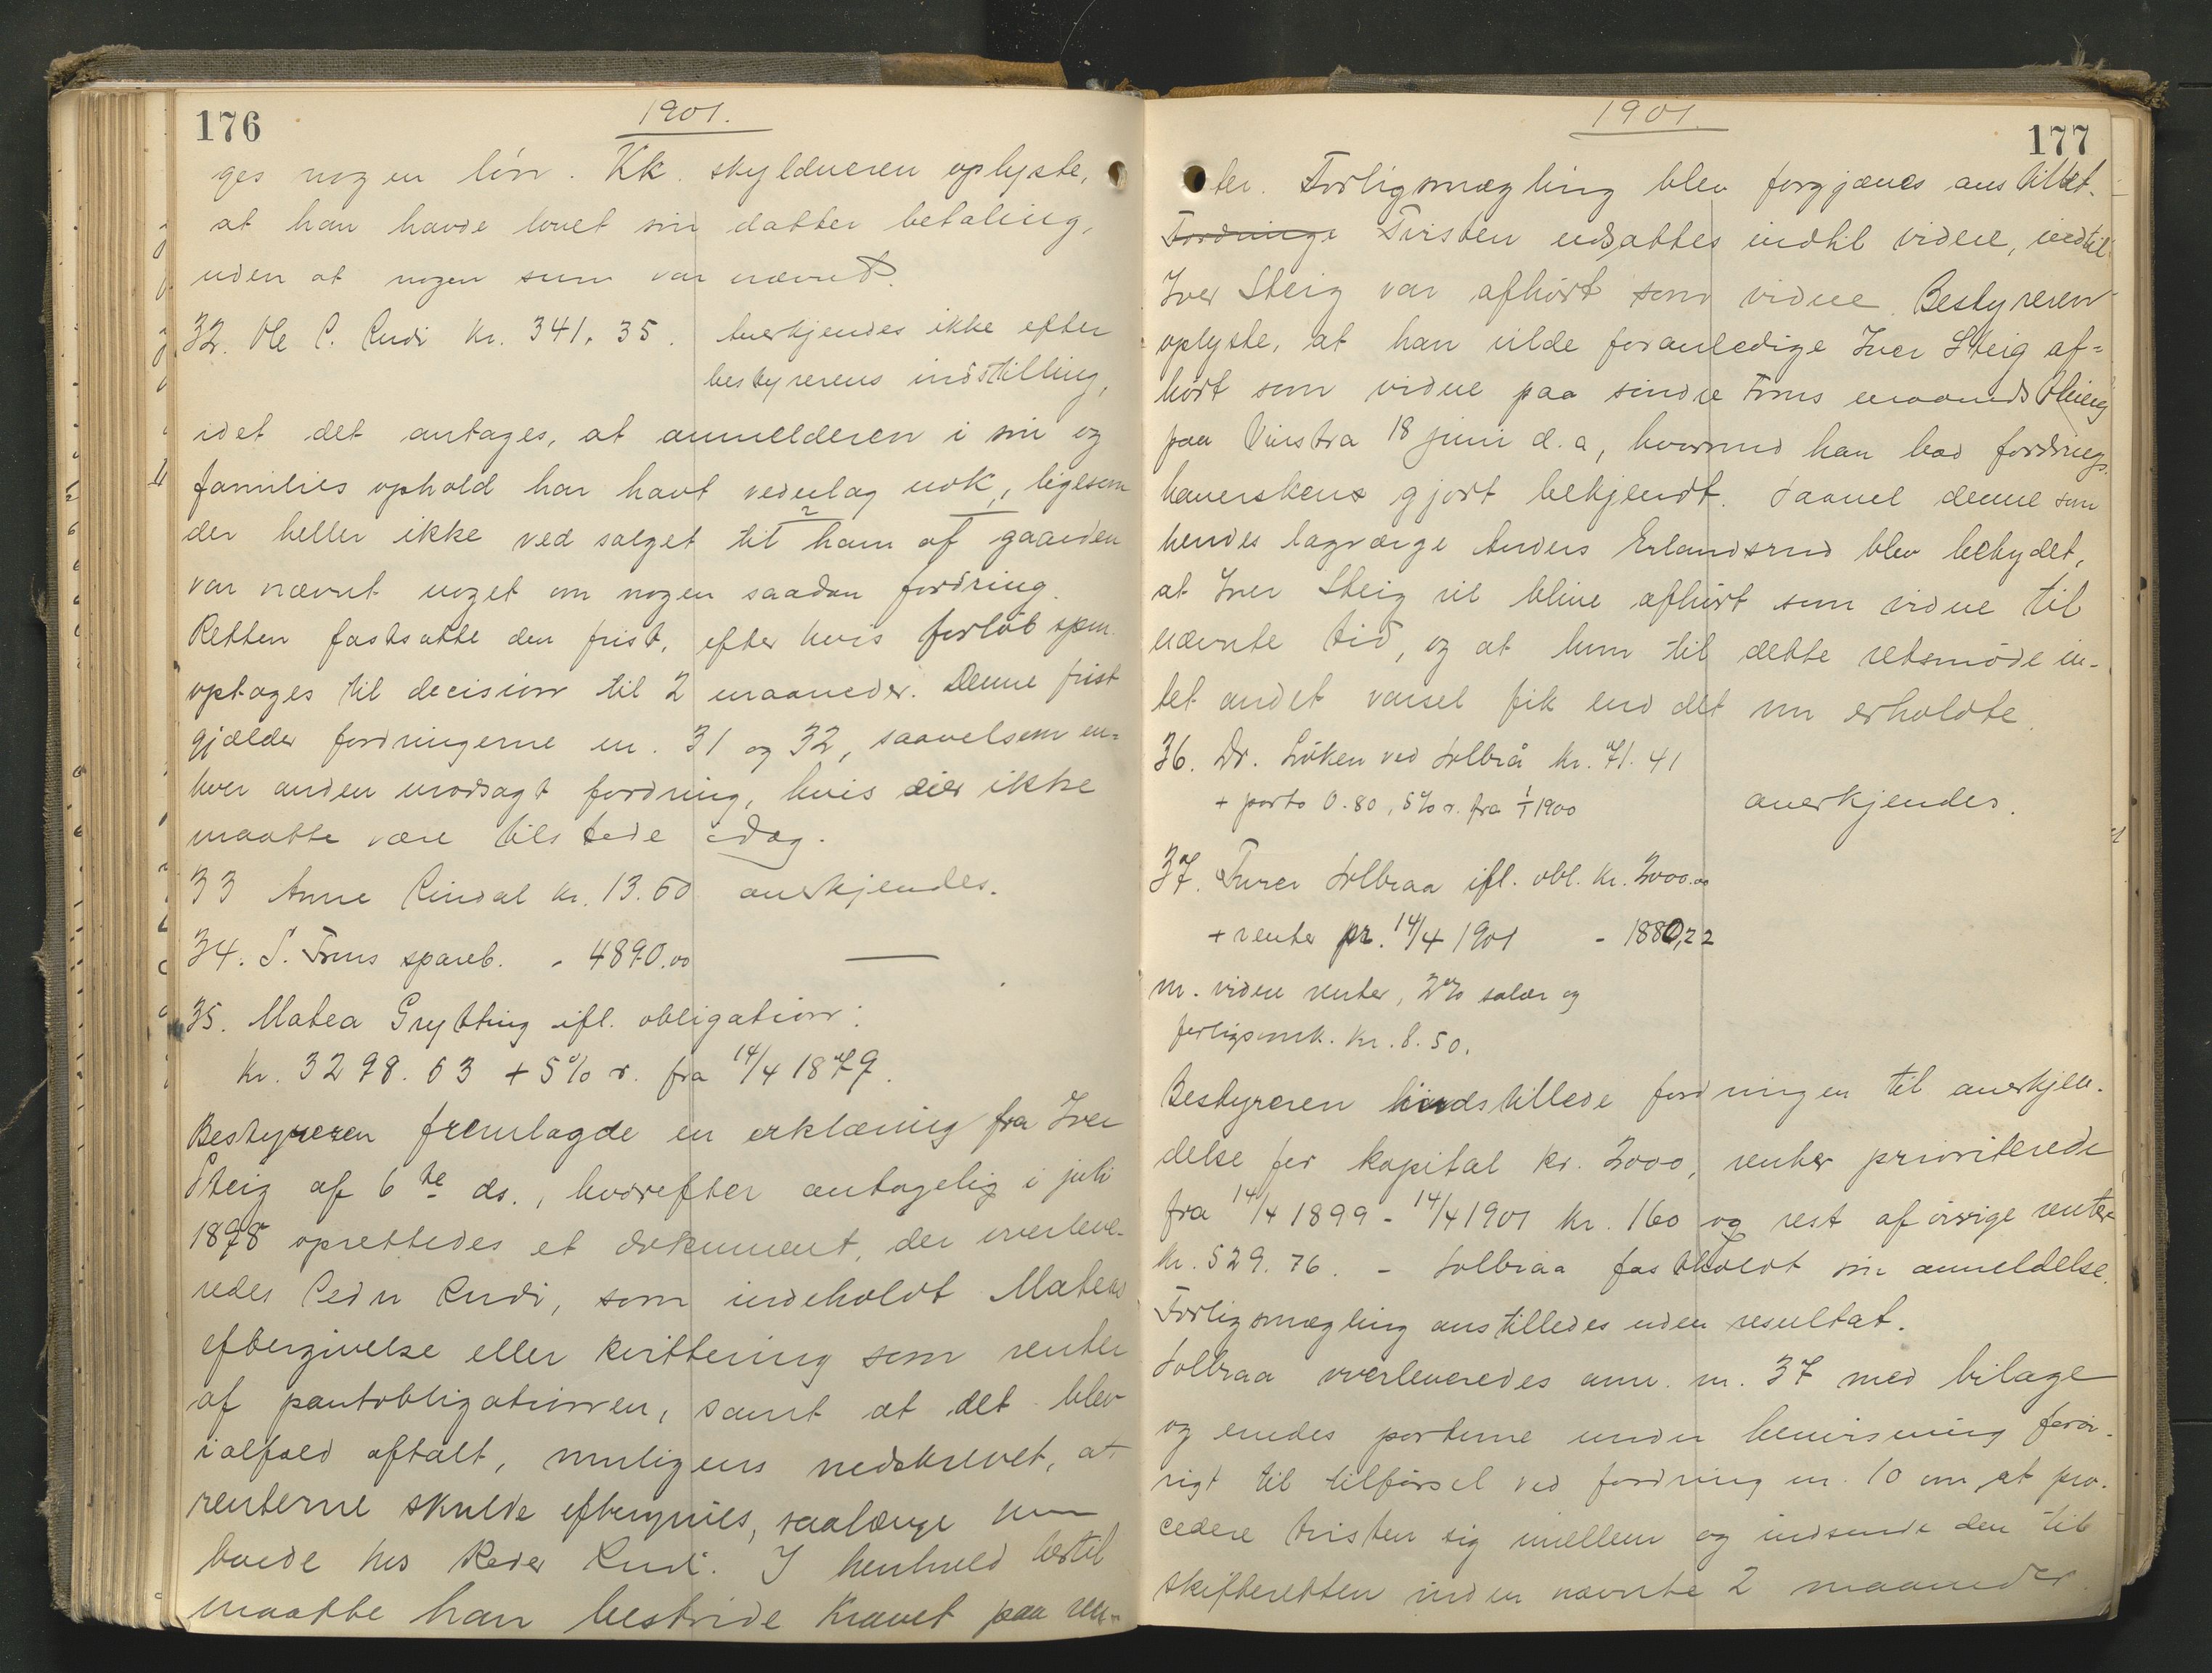 176
1901.
ges nogen løn. Kk. skyldneren oplyste,
at han havde lovet sin datter betaling,
uden at nogen sum var nævnt.
32. Ole P. Rudi kr. 341.35. Anerkjendes ikke efter
bestyrerens indstilling,
idet det antages, at anmelderen i sin og
families ophold har havt vederlag nok, ligesom
der heller ikke ved salget til ham af gaarden
var nævnt noget om nogen saadan fordring.
Retten fastsatte den frist, efter hvis forløb spm.
optages til decision til 2 maaneder. Denne frist
gjælder fordringerne nr. 31 og 32, saavelsom en-
hver anden modsagt fordring, hvis eier ikke
maatte være tilstede idag.
33 Anne Rindal kr. 13.60 anerkjendes.
34. S. Frons spareb. - 4890.00 —
35. Matea Grytting ifl. obligation:
kr. 3298.63 + 5% r. fra 14/4 1879.
Bestyreren fremlagde en erklæring fra Iver
Steig af 6te ds., hvorefter antagelig i juli
1898 oprettedes et dokument, der overleve-
redes Peder Rudi, som indeholdt Mateas
eftergivelse eller kvittering som renter
af pantobligationen, samt at det blev
ialfald aftalt, muligens nedskrevet, at
renterne skulde eftergives, saalænge hun
boede hos Peder Rudi. I henhold hertil
maatte han bestride kravet paa ren-
1901.
177
ter. Forligsmægling blev forgjæves anstillet.
Fordringe Tvisten udsattes indtil videre, indtil
Iver Steig var afhørt som vidne. Bestyreren
oplyste, at han vilde foranledige Iver Steig af-
hørt som vidne paa søndre Frons maanedsthing
paa Vinstra 18 juni d.a, hvormed han bad fordrings-
haverskens gjort bekjendt. Saavel denne som
hendes lagværge Anders Erlandsrud blev betydet,
at Iver Steig vil blive afhørt som vidne til
nævnte tid, og at hun til dette retsmøde in-
tet andet varsel fik end det nu erholdte.
36. Dr. Løken ved Solbrå kr. 71.41
+ porto 0.80, 5% r. fra 1/1 1900 anerkjendes.
37. Furer Solbraa ifl. obl. kr. 2000.00
+ renter pr. 14/4 1901 - 1880,22
m. videre renter, 2% salær og
forligsomk. kr. 8.50.
Bestyreren indstillede fordringen til anerkjen-
delse for kapital kr. 2000, renter prioriterede
fra 14/4 1899 - 14/4 1901 kr. 160 og rest af øvrige renter
kr. 529.76. - Solbraa fastholdt sin anmeldelse.
Forligsmægling anstilledes uden resultat.
Solbraa overleveredes anm. nr. 37 med bilage
og enedes parterne under henvisning forøv-
rigt til tilførsel ved fordring nr. 10 om at pro-
cedere tvisten sig imellem og indsende den til
skifteretten inden nævnte 2 maaneder.